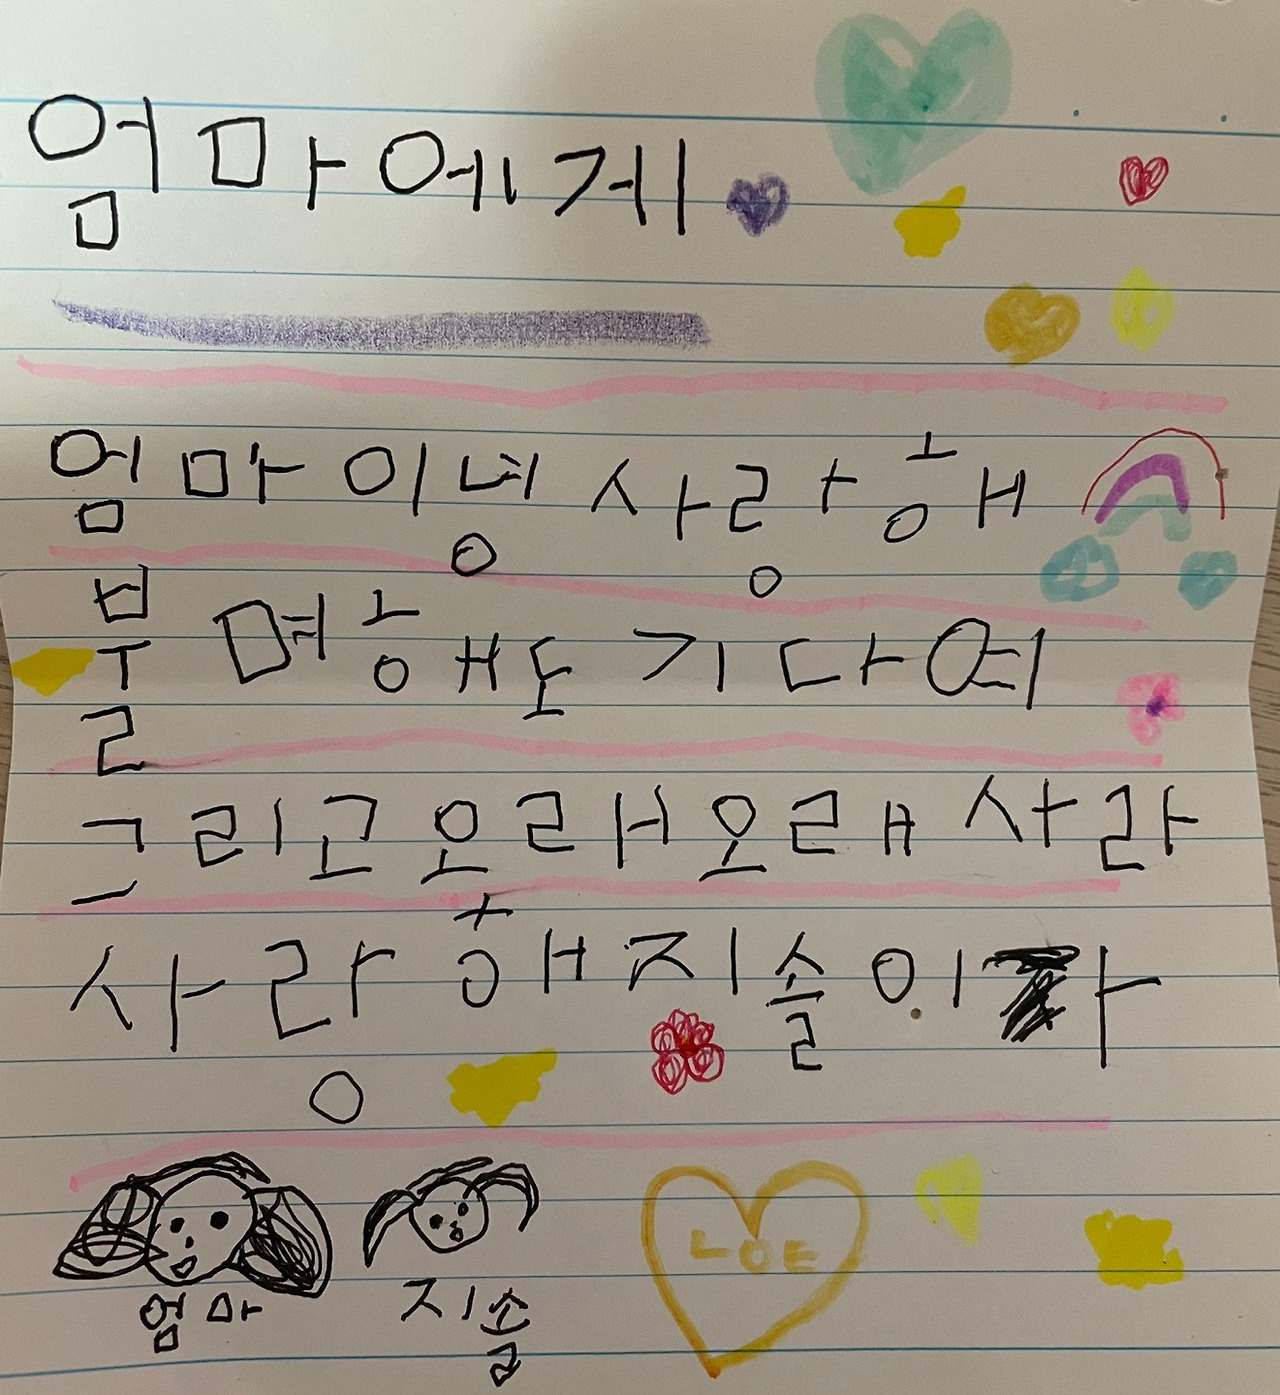 엄마에게
엄마 이녕 사랑해
불몌해도 기다여
그리고 오래오래 사라
사랑해 지솔이가
엄마 지솔
LOE